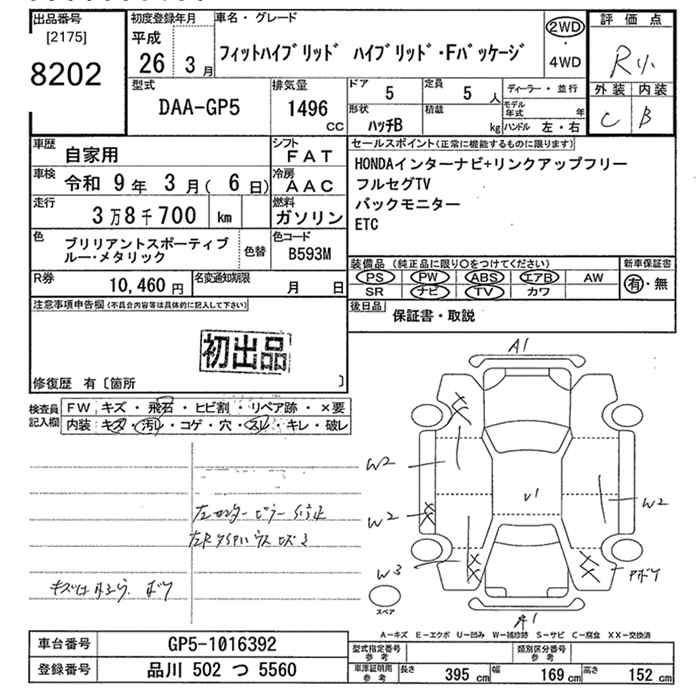 出品番号
[2175]
8202
初度登録年月
平成
26年 3月
車名・グレード
フィットハイブリッド ハイブリッド・Fパッケージ
2WD
・
4WD
評価点
R小
外装 内装
C B
型式
DAA-GP5
排気量
1496
CC
ドア
5
定員
5 人
形状
ハッチB
積載
kg
ディーラー・並行
モデル年式 年
ハンドル 左・右
車歴
自家用
シフト
FAT
車検
令和 9年 3月( 6日)
冷房
AAC
走行
3万8千700 km
燃料
ガソリン
色
ブリリアントスポーティブ
ルー・メタリック
色替
色コード
B593M
R券
10,460円
名変通知期限
月 日
セールスポイント(正常に機能するものに限ります)
HONDAインターナビ+リンクアップフリー
フルセグTV
バックモニター
ETC
装備品 (純正品に限り○をつけてください)
PS PW ABS エアB AW
SR ナビ TV カワ
新車保証書
有・無
後日品
保証書・取説
注意事項申告欄(不具合内容等は具体的に記入して下さい)
初出品
修復歴 有〔箇所 〕
検査員
記入欄
FW キズ・飛石・ヒビ割・リペア跡・×要
内装 キズ・汚レ・コゲ・穴・スレ・キレ・破レ
A1
W2
W2
W3
U1
W2
A1
スペア
A－キズ E－エクボ U－凹み W－補修跡 S－サビ C－腐食 XX－交換済
車台番号
GP5-1016392
登録番号
品川 502 つ 5560
型式指定番号
参考
類別区分番号
参考
車庫証明用
参考
長さ 395 cm 幅 169 cm 高さ 152 cm